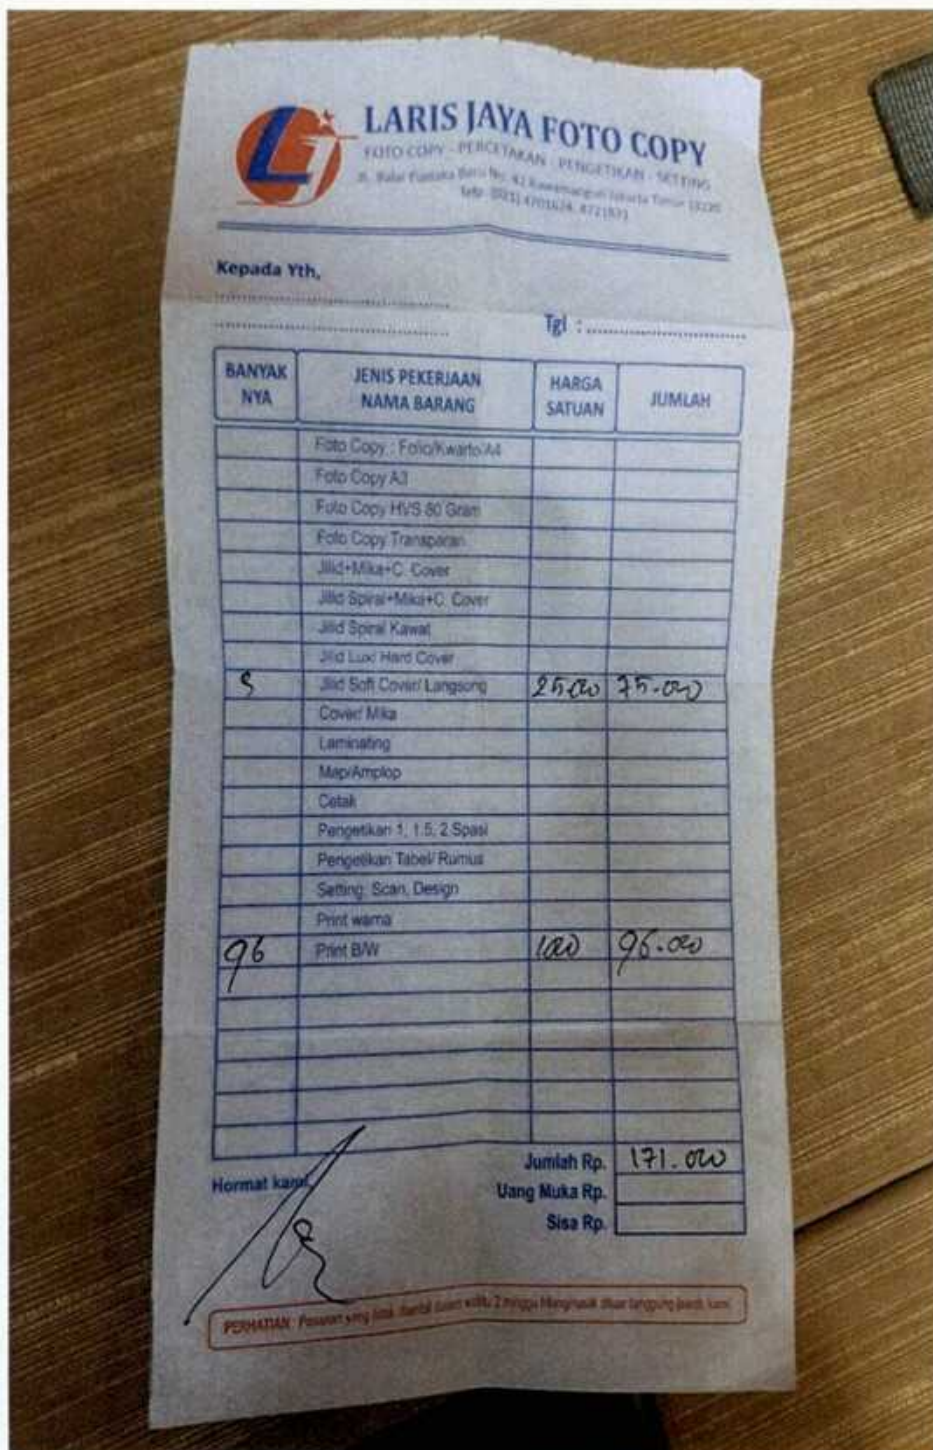 LJ
LARIS JAYA FOTO COPY
FOTO COPY - PERCETAKAN - PENGETIKAN - SETTING
Jl. Balai Pustaka Baru No. 42 Rawamangun Jakarta Timur 13220
Telp. (021) 4701624, 4721971
Kepada Yth,
Tgl :
BANYAK NYA JENIS PEKERJAAN NAMA BARANG HARGA SATUAN JUMLAH
Foto Copy : Folio/Kwarto/A4
Foto Copy A3
Foto Copy HVS 80 Gram
Foto Copy Transparan
Jilid+Mika+C. Cover
Jilid Spiral+Mika+C. Cover
Jilid Spiral Kawat
Jilid Lux/ Hard Cover
3 Jilid Soft Cover/ Langsong 25.000 75.000
Cover/ Mika
Laminating
Map/Amplop
Cetak
Pengetikan 1, 1.5, 2 Spasi
Pengetikan Tabel/ Rumus
Setting, Scan, Design
Print warna
96 Print B/W 1000 96.000
Jumlah Rp. 171.000
Hormat kami, Uang Muka Rp.
Sisa Rp.
PERHATIAN : Pesanan yang tidak diambil dalam waktu 2 minggu Hilang/rusak diluar tanggung jawab kami